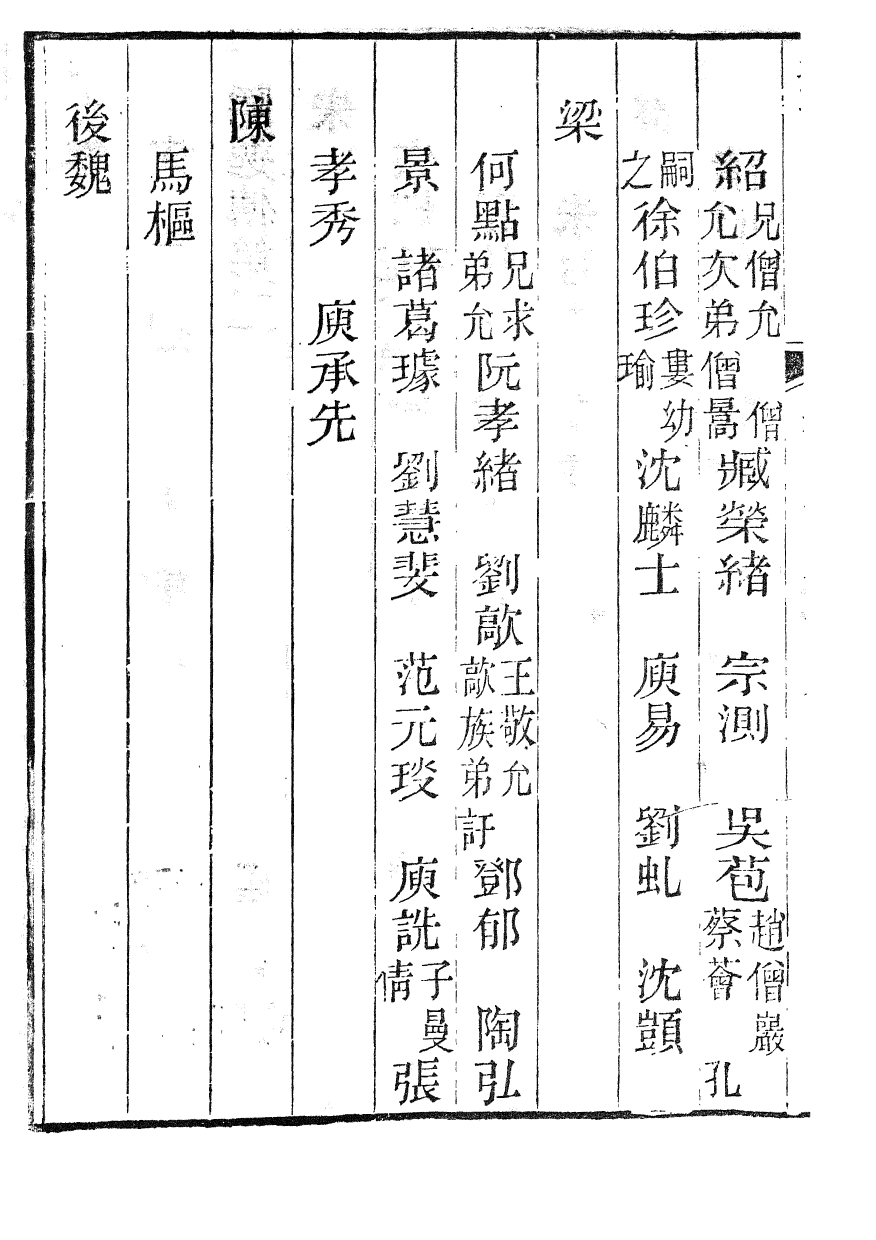 紹兄僧允 僧允次弟僧暠臧榮緒 宗測 吳苞趙僧巖蔡薈 孔
嗣之徐伯珍婁幼瑜沈麟士 庾易 劉虬 沈顗
梁
何點兄求弟允阮孝緒 劉歊王敬允歊族弟訏鄧郁 陶弘
景 諸葛璩 劉慧斐 范元琰 庾詵子曼倩張
孝秀 庾承先
陳
馬樞
後魏